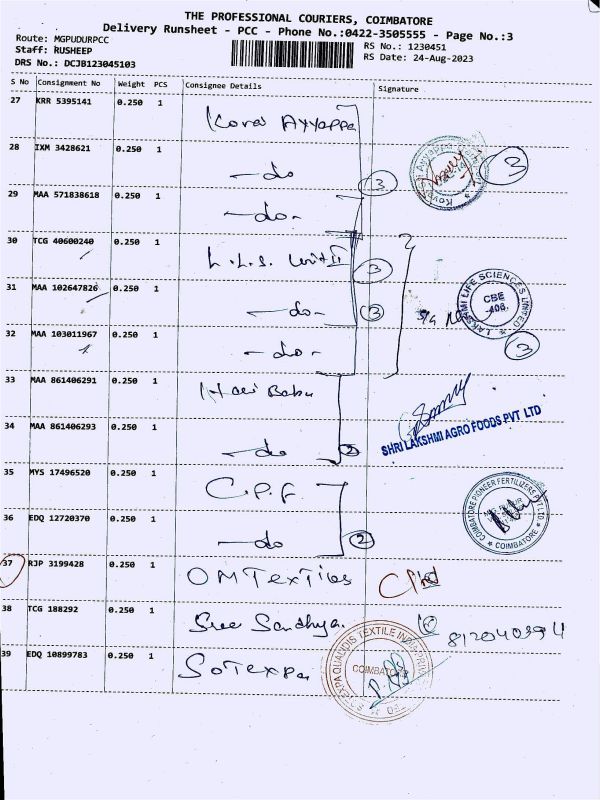 THE PROFESSIONAL COURIERS, COIMBATORE
Delivery Runsheet - PCC - Phone No.:0422-3505555 - Page No.:3
Route: MGPUDURPCC
Staff: RUSHEEP
DRS No.: DCJB123045103
RS No.: 1230451
RS Date: 24-Aug-2023
S No Consignment No Weight PCS Consignee Details Signature
27 KRR 5395141 0.250 1 Kovai Ayyappa
28 IXM 3428621 0.250 1 - do 3 3
29 MAA 571838618 0.250 1 - do -
30 TCG 40600240 0.250 1 L.L.S. Unit II 3
31 MAA 102647826 0.250 1 - do - 3
LAKSHMI LIFE SCIENCES LIMITED
CBE
-406.
32 MAA 103011967 0.250 1 - do - 3
33 MAA 861406291 0.250 1 Hari Babu
34 MAA 861406293 0.250 1 - do 2
SHRI LAKSHMI AGRO FOODS PVT LTD
35 MYS 17496520 0.250 1 C.P.F
COIMBATORE PIONEER FERTILIZERS PVT LTD
* COIMBATORE *
36 EDQ 12720370 0.250 1 - do 2
37 RJP 3199428 0.250 1 OM Textiles
38 TCG 188292 0.250 1 Sree Sandhya.
39 EDQ 10899783 0.250 1 Sotexpa
COIMBATORE